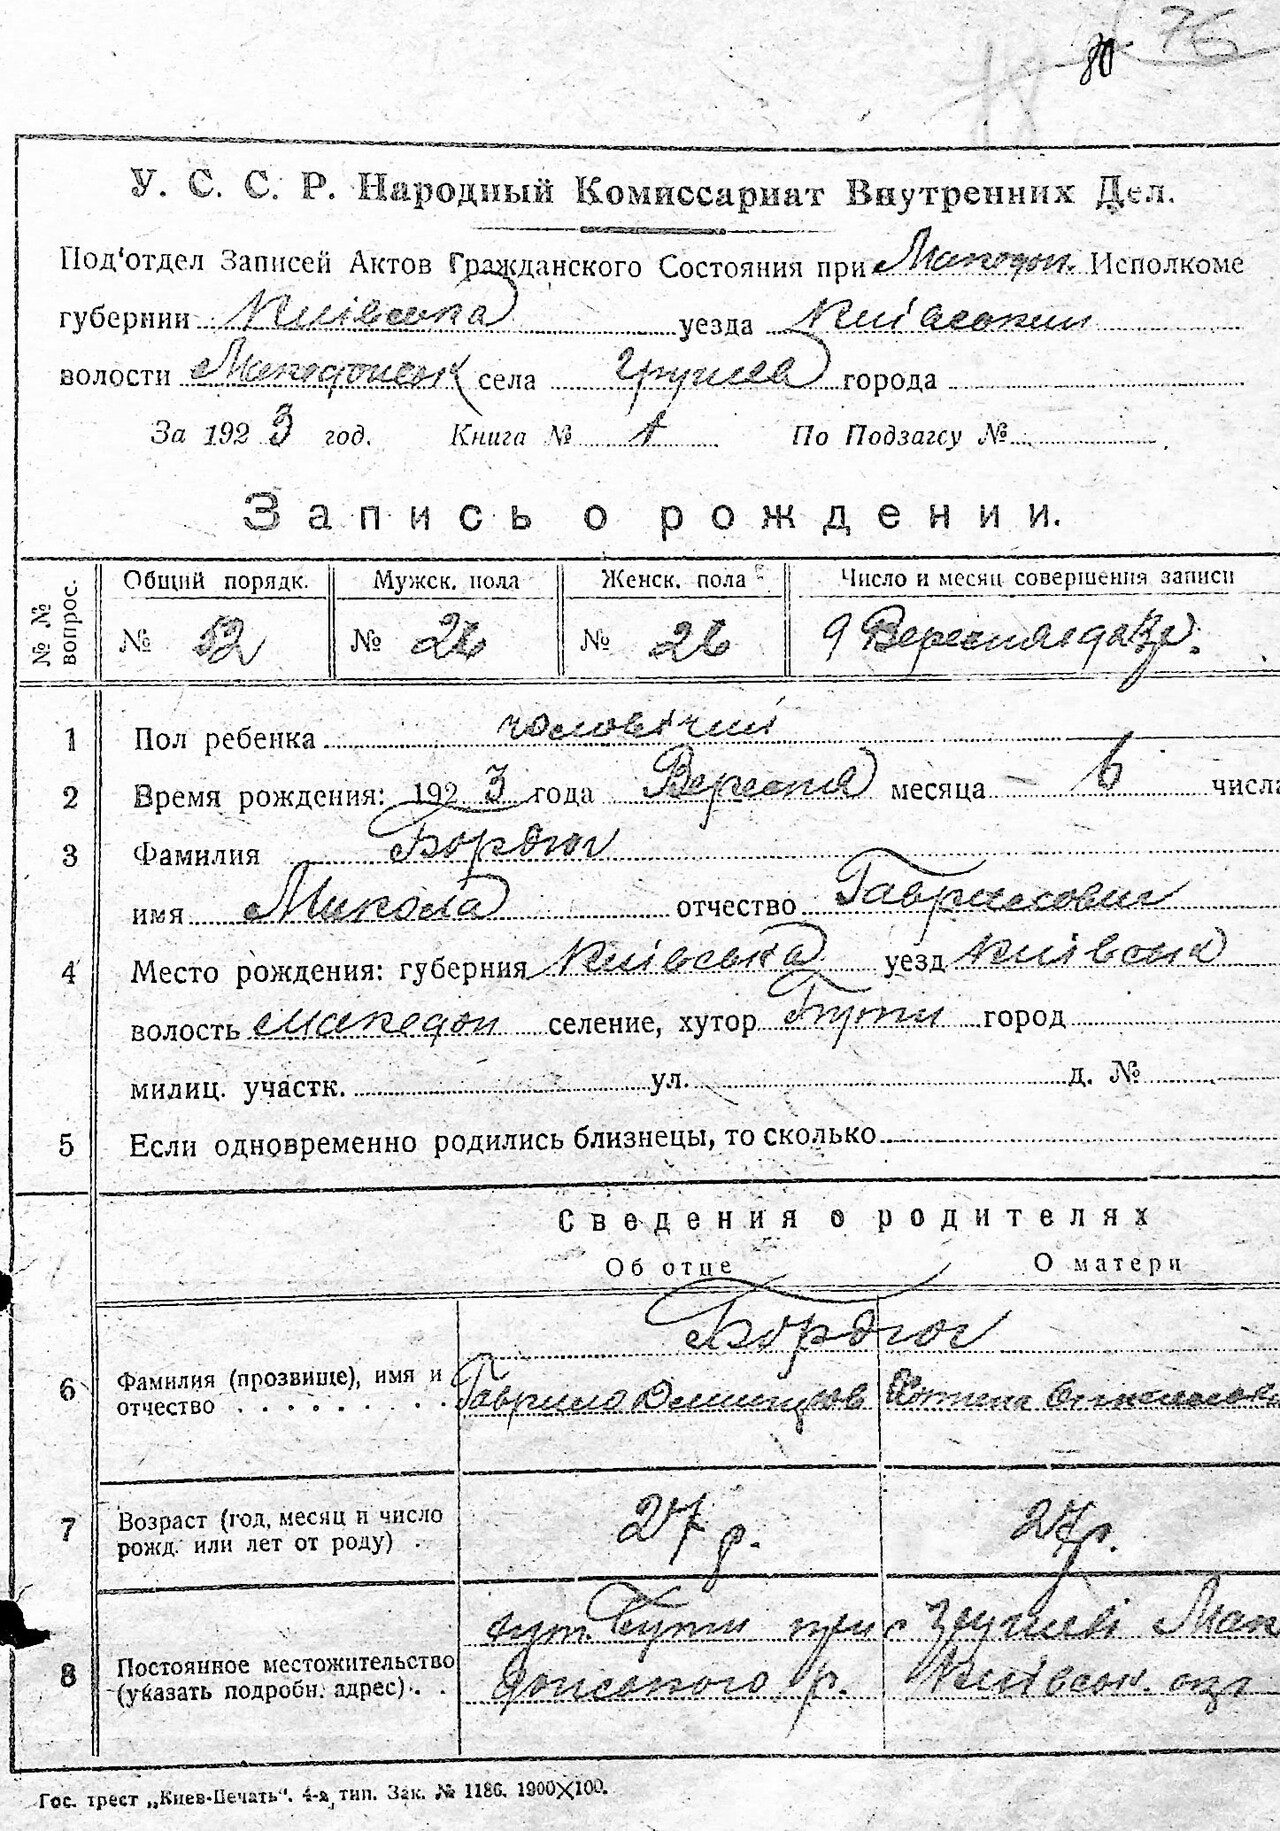 76
У. С. С. Р. Народный Комиссариат Внутренних Дел.
Под‘отдел Записей Актов Гражданского Состояния при Македон. Исполкоме
губернии Київська уезда Київський
волости Македонськ села Грушев города
За 1923 год. Книга № 1 По Подзагсу №
Запись о рождении.
№ № вопрос.
Общий порядк. Мужск. пола Женск. пола Число и месяц совершения записи
№ 52 № 26 № 26 9 Вересня
1 Пол ребенка чоловічий
2 Время рождения: 1923 года Вересня месяца 6 числа
3 Фамилия Бордюг
имя Микола отчество Гаврилович
4 Место рождения: губерния Київська уезд Київська
волость Македон селение, хутор Бутти город
милиц. участк. ул. д. №
5 Если одновременно родились близнецы, то сколько
Сведения о родителях
Об отце О матери
Бордюг
6 Фамилия (прозвище), имя и
отчество . . . . . . . . . Гаврило
7 Возраст (год, месяц и число
рожд. или лет от роду) . 27 р. 27 р.
хут. Бутти при с Грушеві Мак
8 Постоянное местожительство
(указать подробн. адрес) . . донського р. Київськ. окр
Гос. трест „Киев-Печать“. 4-я тип. Зак. № 1186. 1900X100.